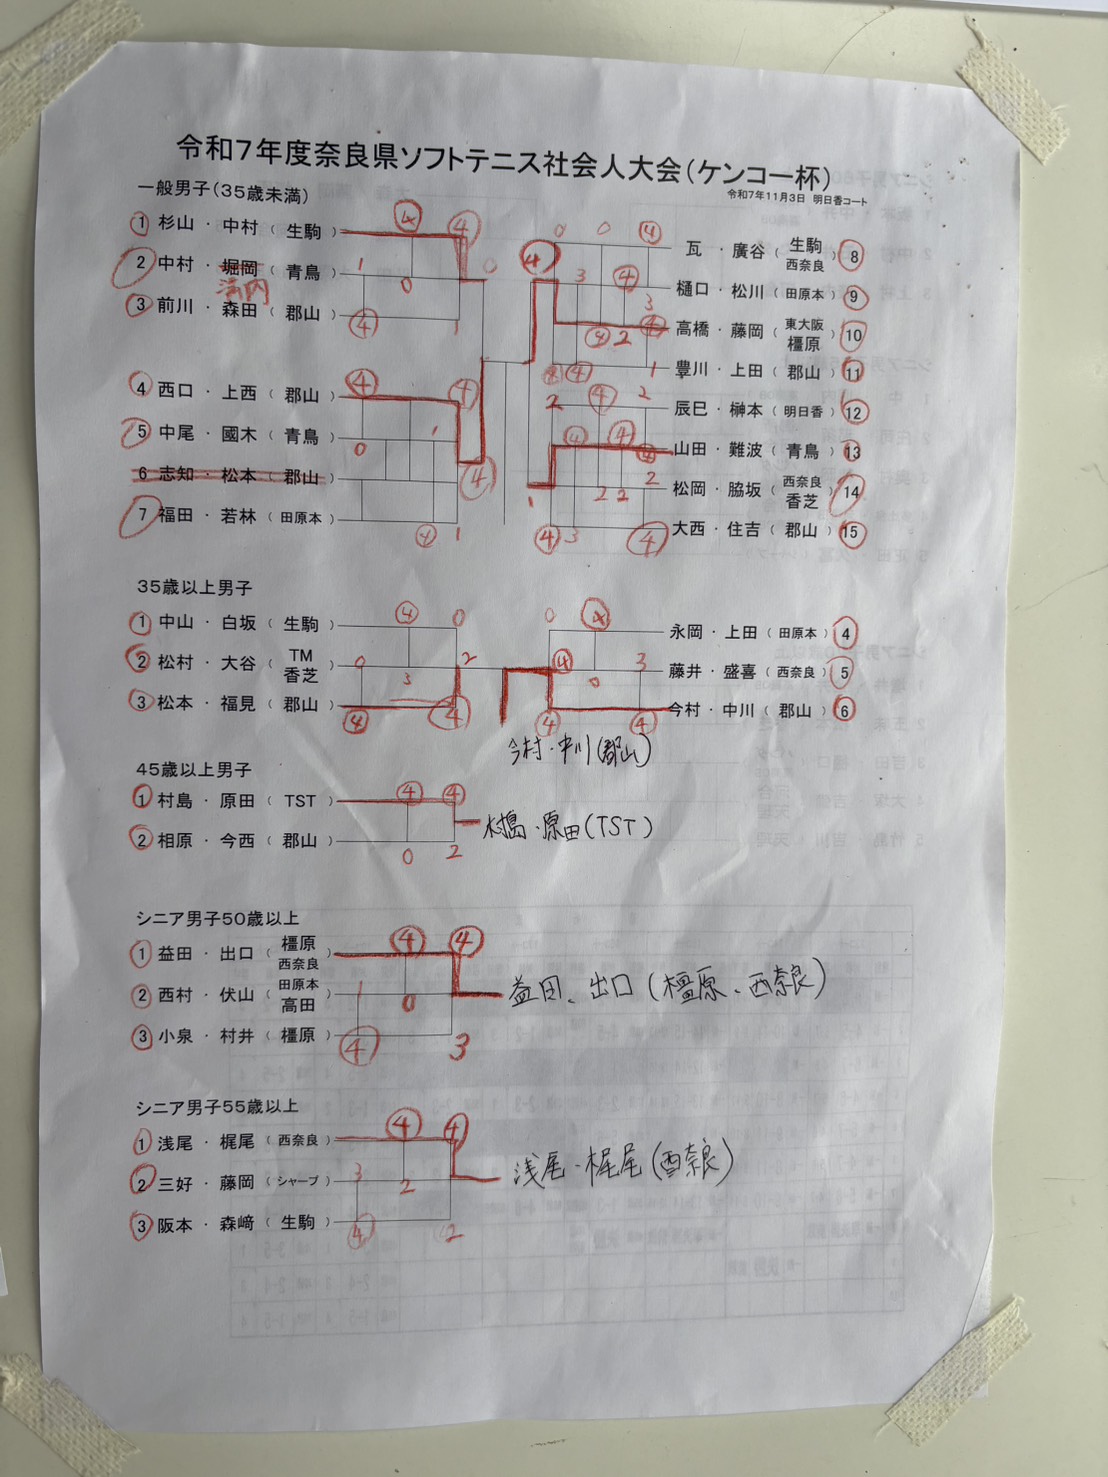 令和7年度奈良県ソフトテニス社会人大会(ケンコー杯)
令和7年11月3日 明日香コート
一般男子(35歳未満)
1 杉山・中村(生駒)
2 中村・堀岡(青鳥)
3 前川・森田(郡山)
4 西口・上西(郡山)
5 中尾・國木(青鳥)
6 志知・松本(郡山)
7 福田・若林(田原本)
瓦・廣谷(生駒 西奈良)8
樋口・松川(田原本)9
高橋・藤岡(東大阪 橿原)10
豊川・上田(郡山)11
辰巳・榊本(明日香)12
山田・難波(青鳥)13
松岡・脇坂(西奈良 香芝)14
大西・住吉(郡山)15
35歳以上男子
1 中山・白坂(生駒)
2 松村・大谷(TM 香芝)
3 松本・福見(郡山)
永岡・上田(田原本)4
藤井・盛喜(西奈良)5
今村・中川(郡山)6
今村・中川(郡山)
45歳以上男子
1 村島・原田(TST)
2 相原・今西(郡山)
村島・原田(TST)
シニア男子50歳以上
1 益田・出口(橿原 西奈良)
2 西村・伏山(田原本 高田)
3 小泉・村井(橿原)
益田、出口(橿原、西奈良)
シニア男子55歳以上
1 浅尾・梶尾(西奈良)
2 三好・藤岡(シャープ)
3 阪本・森﨑(生駒)
浅尾・梶尾(西奈良)